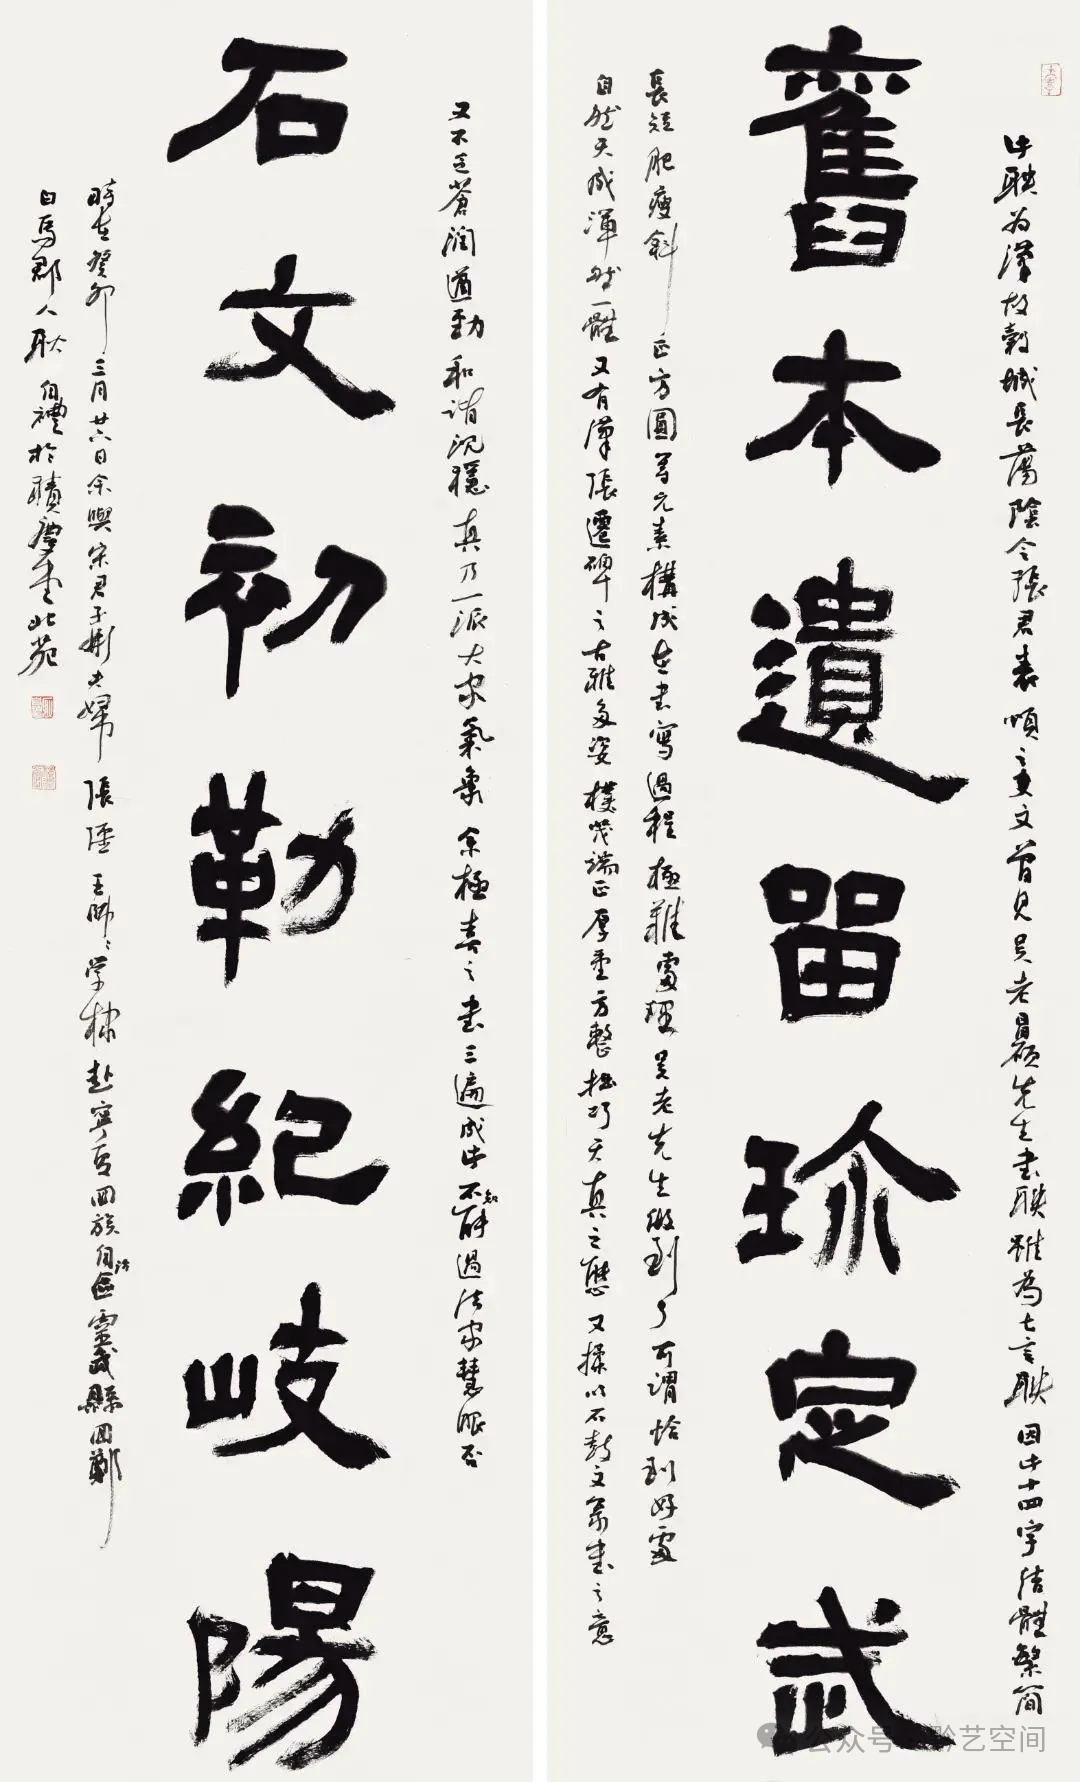 舊本遺留珍定武
石文初勒紀岐陽
此联为漢故穀城長蕩陰令張君表頌之文曾見吴老先生書联雖為七言联因此十四字结體繁簡
長短肥瘦斜正方圓等元素構成在書寫過程極難處理吴老先生做到了可謂恰到好處
自然天成渾然一體又有漢張遷碑之古雅多姿樸茂端正厚重方整拙巧天真之態又揉以石鼓文篆書之意
又不乏蒼潤遒勁和谐沉穩真乃一派大家氣象余極喜之書三遍成此不知能過法家慧眼否
時在癸卯三月廿六日余與宋君子彬夫婦張王学棣赴寧夏回族自治區靈武縣回鄭
白馬郡人耿自禮於慶北苑
公众号 黔艺空间